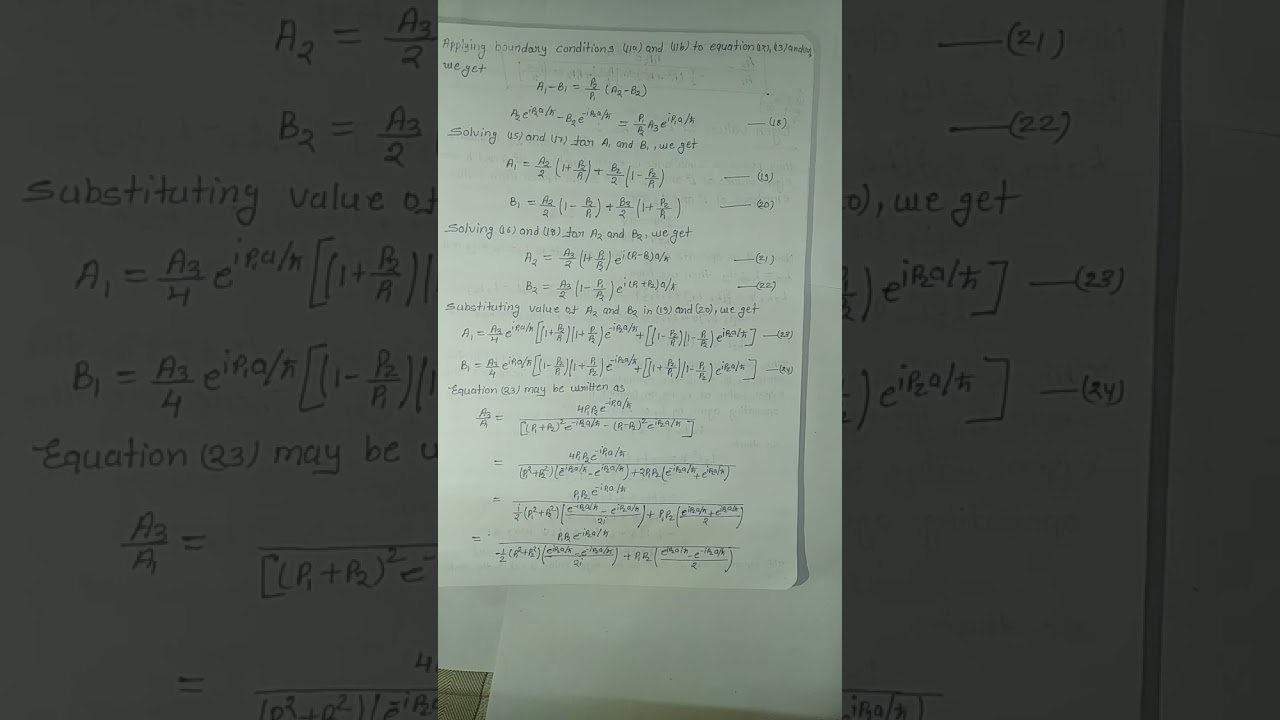 Applying boundary conditions (11a) and (11b) to equation (12), (13) and
we get
A₁-B₁ = P₂/P₁ (A₂-B₂)
A₂e^{iP₂a/ℏ} - B₂e^{-iP₂a/ℏ} = P₁/P₂ A₃e^{iP₁a/ℏ} —(18)
Solving (15) and (17) for A₁ and B₁, we get
A₁ = A₂/2 (1+P₂/P₁) + B₂/2 (1-P₂/P₁) —(19)
B₁ = A₂/2 (1-P₂/P₁) + B₂/2 (1+P₂/P₁) —(20)
Solving (16) and (18) for A₂ and B₂, we get
A₂ = A₃/2 (1+P₁/P₂) e^{i(P₁-P₂)a/ℏ} —(21)
B₂ = A₃/2 (1-P₁/P₂) e^{i(P₁+P₂)a/ℏ} —(22)
Substituting value of A₂ and B₂ in (19) and (20), we get
A₁ = A₃/4 e^{iP₁a/ℏ} [(1+P₂/P₁)(1+P₁/P₂) e^{-iP₂a/ℏ} + [(1-P₂/P₁)(1-P₁/P₂) e^{iP₂a/ℏ}] —(23)
B₁ = A₃/4 e^{iP₁a/ℏ} [(1-P₂/P₁)(1+P₁/P₂) e^{-iP₂a/ℏ} + [(1+P₂/P₁)(1-P₁/P₂) e^{iP₂a/ℏ}] —(24)
Equation (23) may be written as
A₃/A₁ = 4P₁P₂e^{-iP₁a/ℏ} / [(P₁+P₂)²e^{-iP₂a/ℏ} - (P₁-P₂)²e^{iP₂a/ℏ}]
= 4P₁P₂e^{-iP₁a/ℏ} / (P₁²+P₂²)(e^{-iP₂a/ℏ} - e^{iP₂a/ℏ}) + 2P₁P₂(e^{-iP₂a/ℏ} + e^{iP₂a/ℏ})
= P₁P₂e^{-iP₁a/ℏ} / i/2 (P₁²+P₂²) (e^{-iP₂a/ℏ} - e^{iP₂a/ℏ}/2i) + P₁P₂ (e^{iP₂a/ℏ} + e^{iP₂a/ℏ}/2)
= P₁P₂e^{-iP₁a/ℏ} / -i/2 (P₁²+P₂²) (e^{iP₂a/ℏ} - e^{-iP₂a/ℏ}/2i) + P₁P₂ (e^{iP₂a/ℏ} - e^{-iP₂a/ℏ}/2)